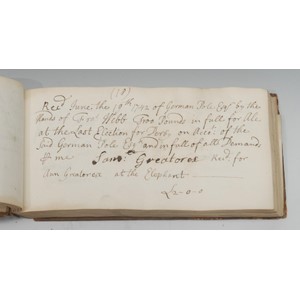 (18)
Recd June the 19th 1742 of German Pole Esqr by the
Hands of Webb Two Pounds in full for Ale
at the Last Election for Derby on Acct of the
said German Pole Esqr and in full of all Demands
me Saml Greatorex Recd for
Greatorex at the Elephant
£2-0-0